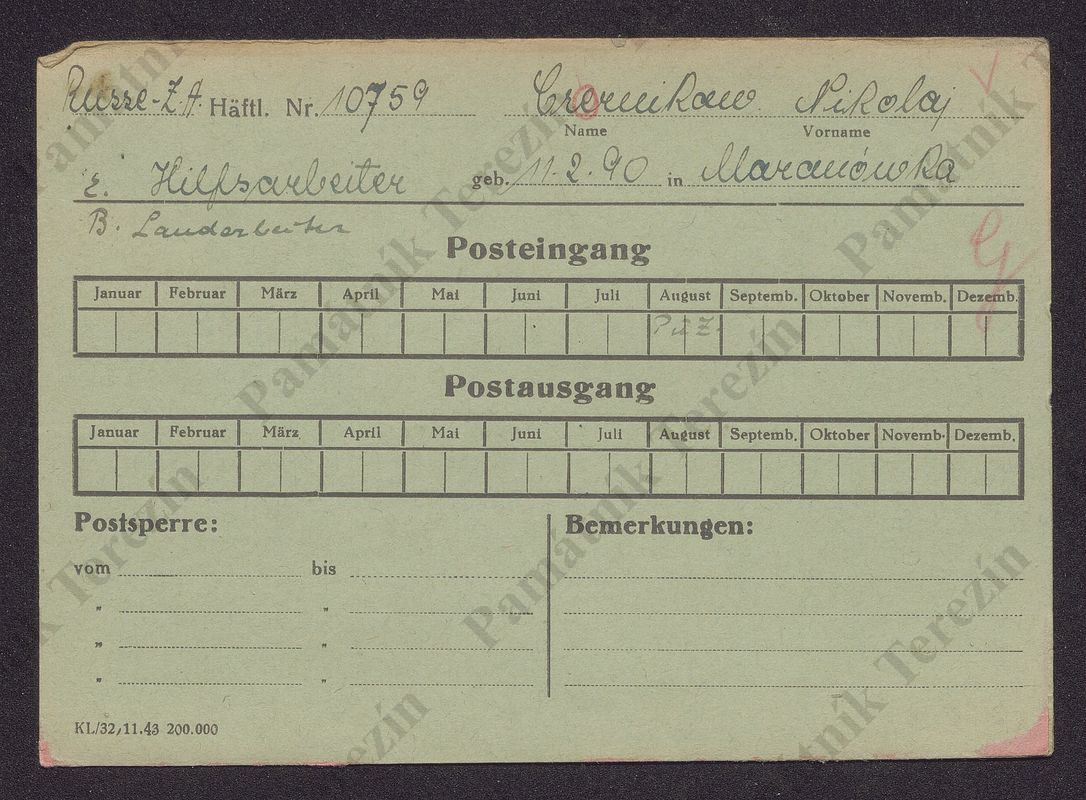 Russe-Z.A. Häftl. Nr. 10759 Czernikow Nikolaj
Name Vorname
E. Hilfsarbeiter geb. 11.2.90 in Maranówka
B. Landarbeiter
Posteingang
Januar Februar März April Mai Juni Juli August Septemb. Oktober Novemb. Dezemb.
P.u.Z.
Postausgang
Januar Februar März April Mai Juni Juli August Septemb. Oktober Novemb. Dezemb.
Postsperre: Bemerkungen:
vom bis
" "
" "
" "
KL/32/11.43 200.000
Památník Terezín
Památník Terezín
Památník Terezín
Památník Terezín
Památník Terezín